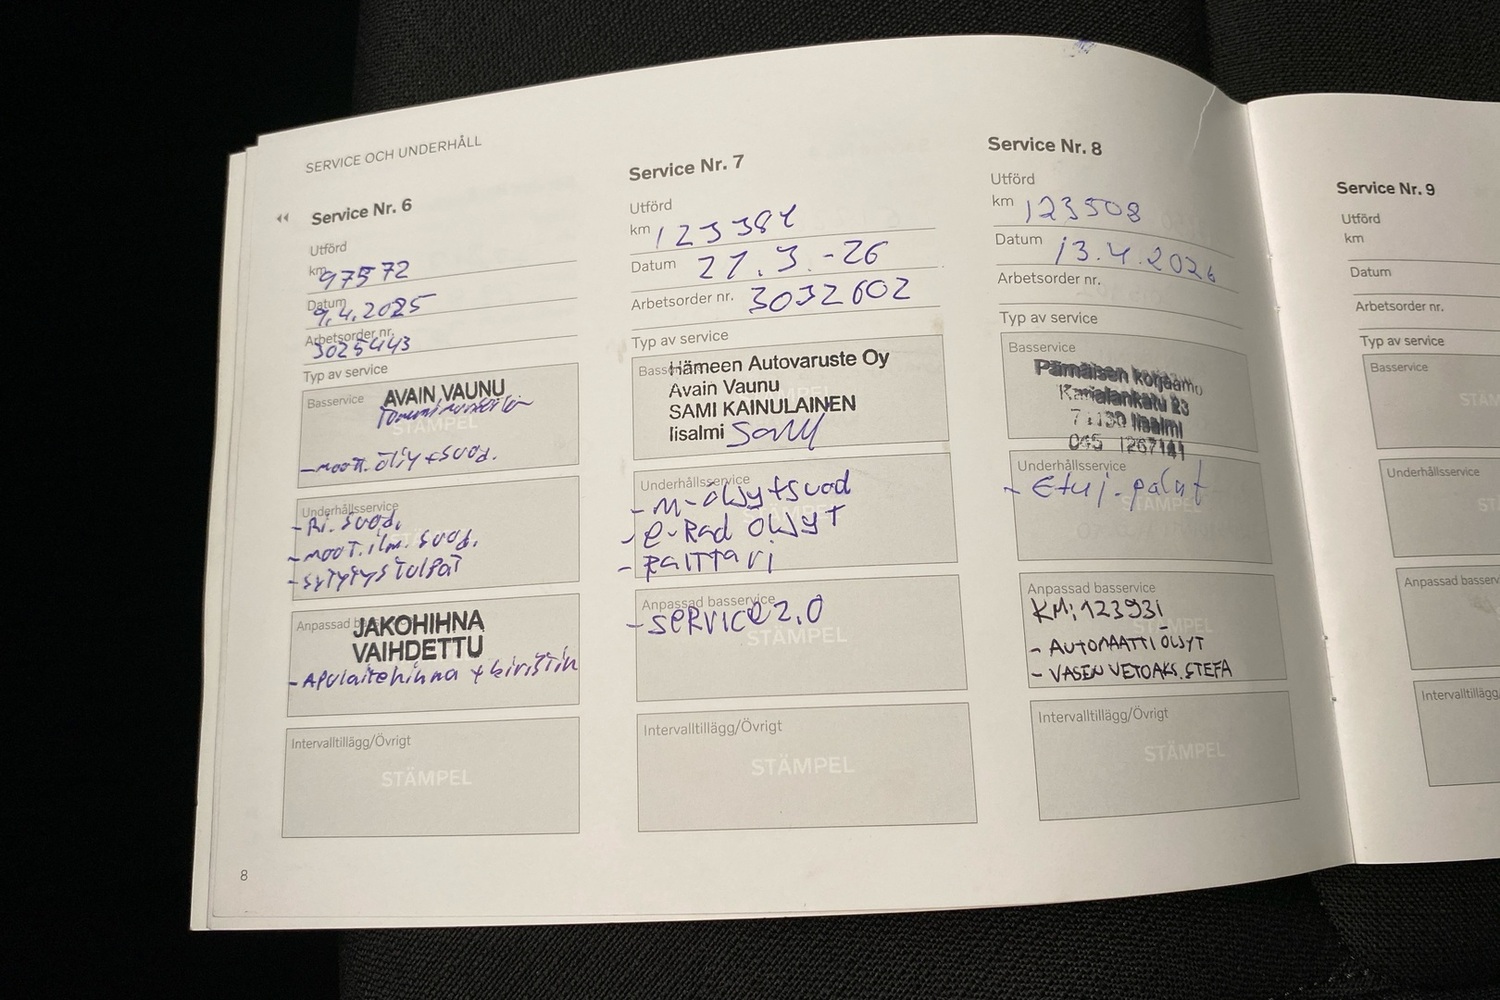 SERVICE OCH UNDERHÅLL
Service Nr. 6
Utförd
km 97572
Datum 9.4.2025
Arbetsorder nr. 3025443
Typ av service
Basservice
AVAIN VAUNU
STÄMPEL
-moott.öljy+suod.
Underhållsservice
- Ri. suod.
- moot.ilm. suod.
- sytytystulpat
Anpassad basservice
JAKOHIHNA
VAIHDETTU
- Apulaitehihna + kiristin
Intervalltillägg/Övrigt
STÄMPEL
8
Service Nr. 7
Utförd
km 123384
Datum 27.3.-26
Arbetsorder nr. 3032602
Typ av service
Basservice
Hämeen Autovaruste Oy
Avain Vaunu
SAMI KAINULAINEN
Iisalmi Sami
STÄMPEL
Underhållsservice
- M-öljyt+suod
- e-Rad öljyt
- Raittari
Anpassad basservice
- SERVICE 2.0
STÄMPEL
Intervalltillägg/Övrigt
STÄMPEL
Service Nr. 8
Utförd
km 123508
Datum 13.4.2026
Arbetsorder nr.
Typ av service
Basservice
Pärnäisen korjaamo
Karjalankatu 23
74130 Iisalmi
045 1267141
Underhållsservice
- Etuj. palat
STÄMPEL
Anpassad basservice
KM: 123931
STÄMPEL
- AUTOMAATTIÖLJYT
- VASEN VETOAKS. STEFA
Intervalltillägg/Övrigt
STÄMPEL
Service Nr. 9
Utförd
km
Datum
Arbetsorder nr.
Typ av service
Basservice
Underhållsservice
Anpassad basserv
Intervalltillägg